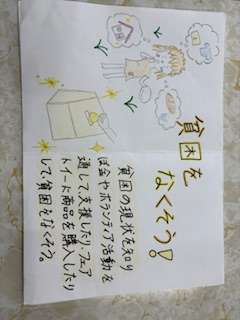 貧困を
なくそう!
貧困の現状を知り
ぼ金やボランティア活動を
通して支援したり、フェア
トレード商品を購入したり
して貧困をなくそう。